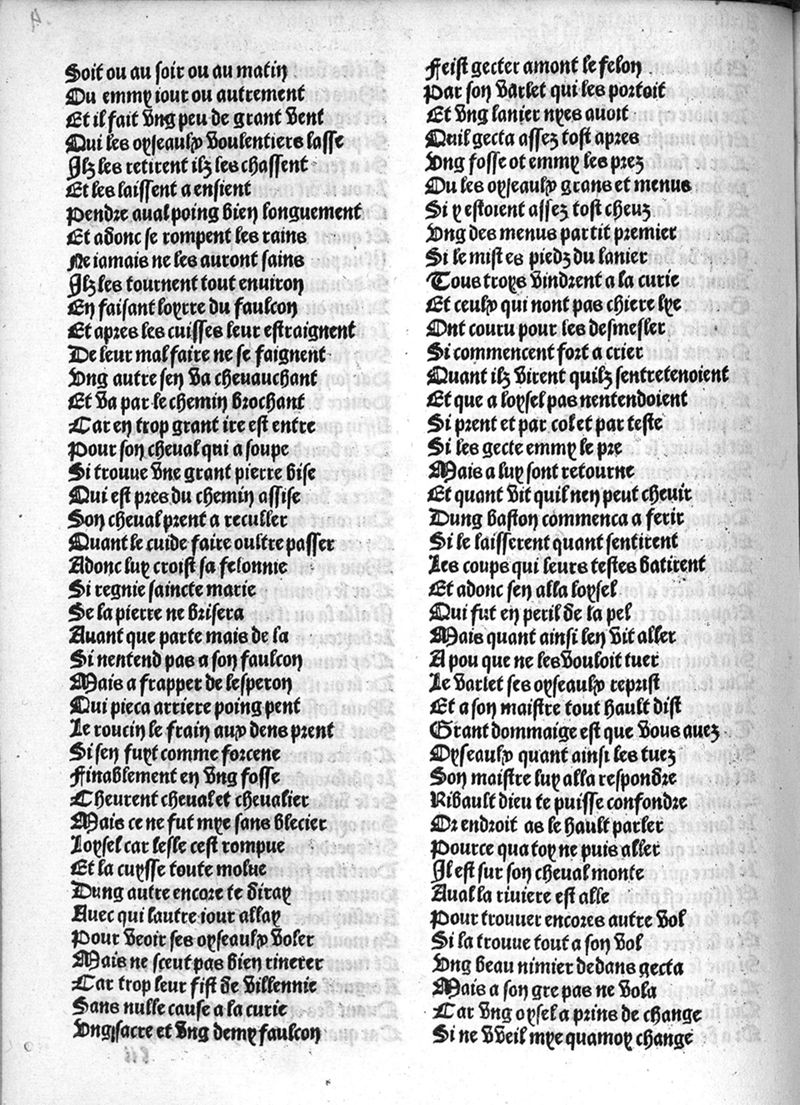 Soit ou au soir ou au matin
Ou emmy iour ou autrement
Et il fait vng peu de grant vent
Qui les oyseaulx voulentiers lasse
Ilz les retirent ilz les chassent
Et les laissent a ensient
Pendre aual poing bien longuement
Et adonc se rompent les rains
Ne iamais ne les auront sains
Ilz les tournent tout enuiron
En faisant loyrre du faulcon
Et apres les cuisses leur estraignent
De leur mal faire ne se faignent
Vng autre sen va cheuauchant
Et va par le chemin brochant
Car en trop grant ire est entre
Pour son cheual qui a soupe
Si trouue vne grant pierre bise
Qui est pres du chemin assise
Son cheual prent a reculler
Quant le cuide faire oultre passer
Adonc luy croist sa felonnie
Si regnie saincte marie
Se la pierre ne brisera
Auant que parte mais de la
Si nentend pas a son faulcon
Mais a frapper de lesperon
Qui pieca arriere poing pent
Le roucin le frain aux dens prent
Si sen fuyt comme forcene
Finablement en vng fosse
Cheurent cheual et cheualier
Mais ce ne fut mye sans blecier
Loysel car lesle cest rompue
Et la cuysse toute molue
Dung autre encore te diray
Auec qui lautre iour allay
Pour veoir ses oyseaulx voler
Mais ne sceut pas bien rinerer
Car trop leur fist de villennie
Sans nulle cause a la curie
Vng sacre et vng demy faulcon
Feist gecter amont le felon
Par son varlet qui les portoit
Et vng lanier nyes auoit
Quil gecta assez tost apres
Vng fosse ot emmy les prez
Ou les oyseaulx grans et menus
Si y estoient assez tost cheuz
Vng des menus partit premier
Si le mist es piedz du lanier
Tous troys vindrent a la curie
Et ceulx qui nont pas chiere lye
Ont couru pour les desmesler
Si commencent fort a crier
Quant ilz virent quilz sentretenoient
Et que a loysel pas nentendoient
Si prent et par col et par teste
Si les gecte emmy le pre
Mais a luy sont retourne
Et quant vit quil nen peut cheuir
Dung baston commenca a ferir
Si le laisserent quant sentirent
Les coups qui leurs testes batirent
Et adonc sen alla loysel
Qui fut en peril de la pel
Mais quant ainsi len vit aller
A pou que ne les vouloit tuer
Le varlet ses oyseaulx reprist
Et a son maistre tout hault dist
Grant dommaige est que vous auez
Oyseaulx quant ainsi les tuez
Son maistre luy alla respondre
Ribault dieu te puisse confondre
Or endroit as le hault parler
Pource qua toy ne puis aller
Il est sur son cheual monte
Aual la riuiere est alle
Pour trouuer encores autre vol
Si la trouue tout a son vol
Vng beau nimier dedans gecta
Mais a son gre pas ne vola
Car vng oysel a prins de change
Si ne vveil mye quamoy change